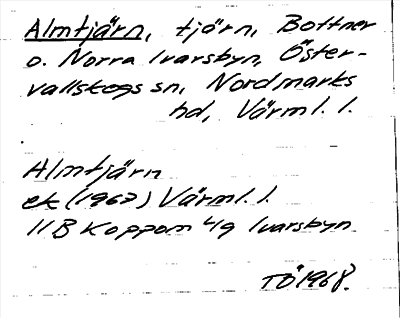 Almtjärn, tjärn, Bottner
o. Norra Ivarsbyn, Öster-
vallskogs sn, Nordmarks
hd, Värml. l.
Almtjärn
ek (1967) Värml. l.
11B Koppom 4g Ivarsbyn
TÖ 1968.